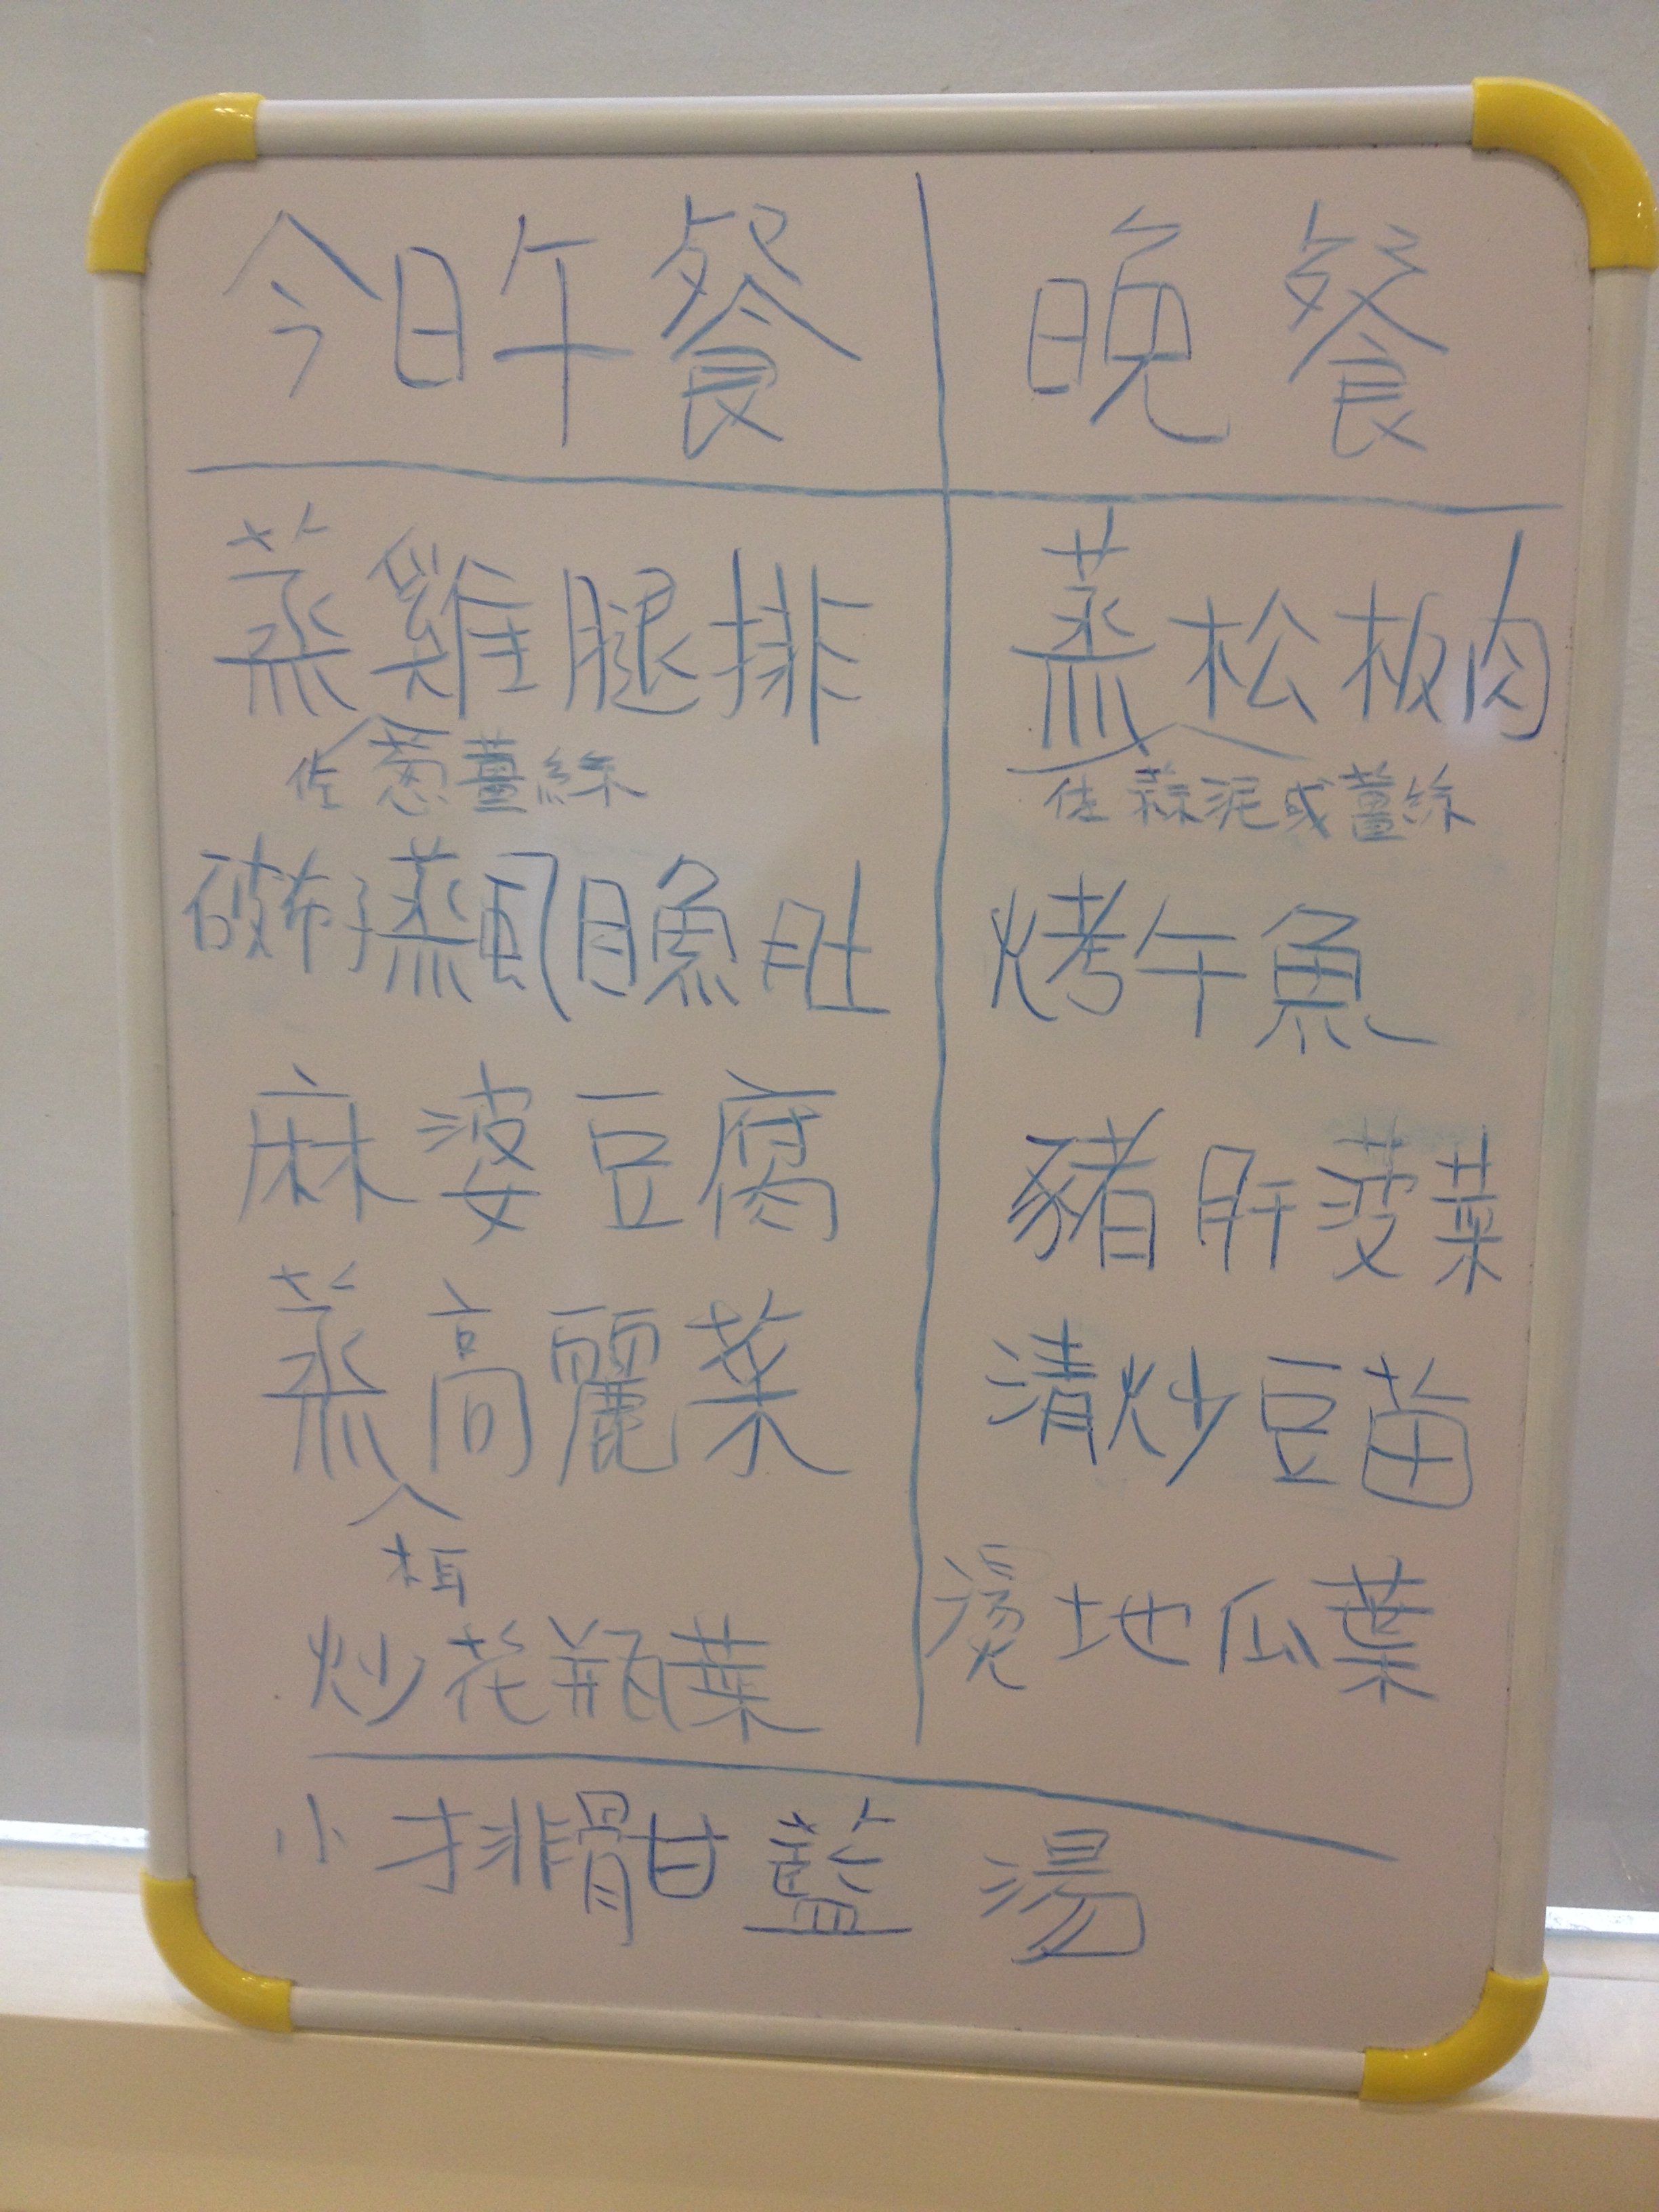 今日午餐
蒸雞腿排
佐蔥薑絲
破布子蒸虱目魚肚
麻婆豆腐
蒸高麗菜
木耳
炒花瓶菜
晚餐
蒸松板肉
佐蒜泥或薑絲
烤午魚
豬肝菠菜
清炒豆苗
燙地瓜葉
小排骨甘藍 湯